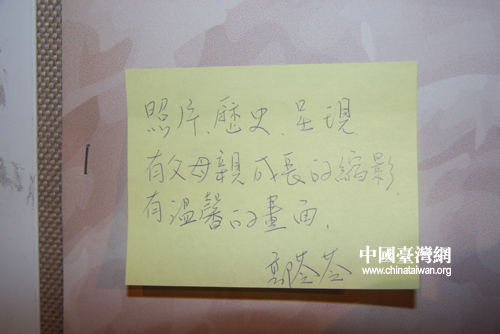 照片、歷史、呈現
有父母親成長的縮影
有溫馨的畫面、
中國臺灣網
www.chinataiwan.org